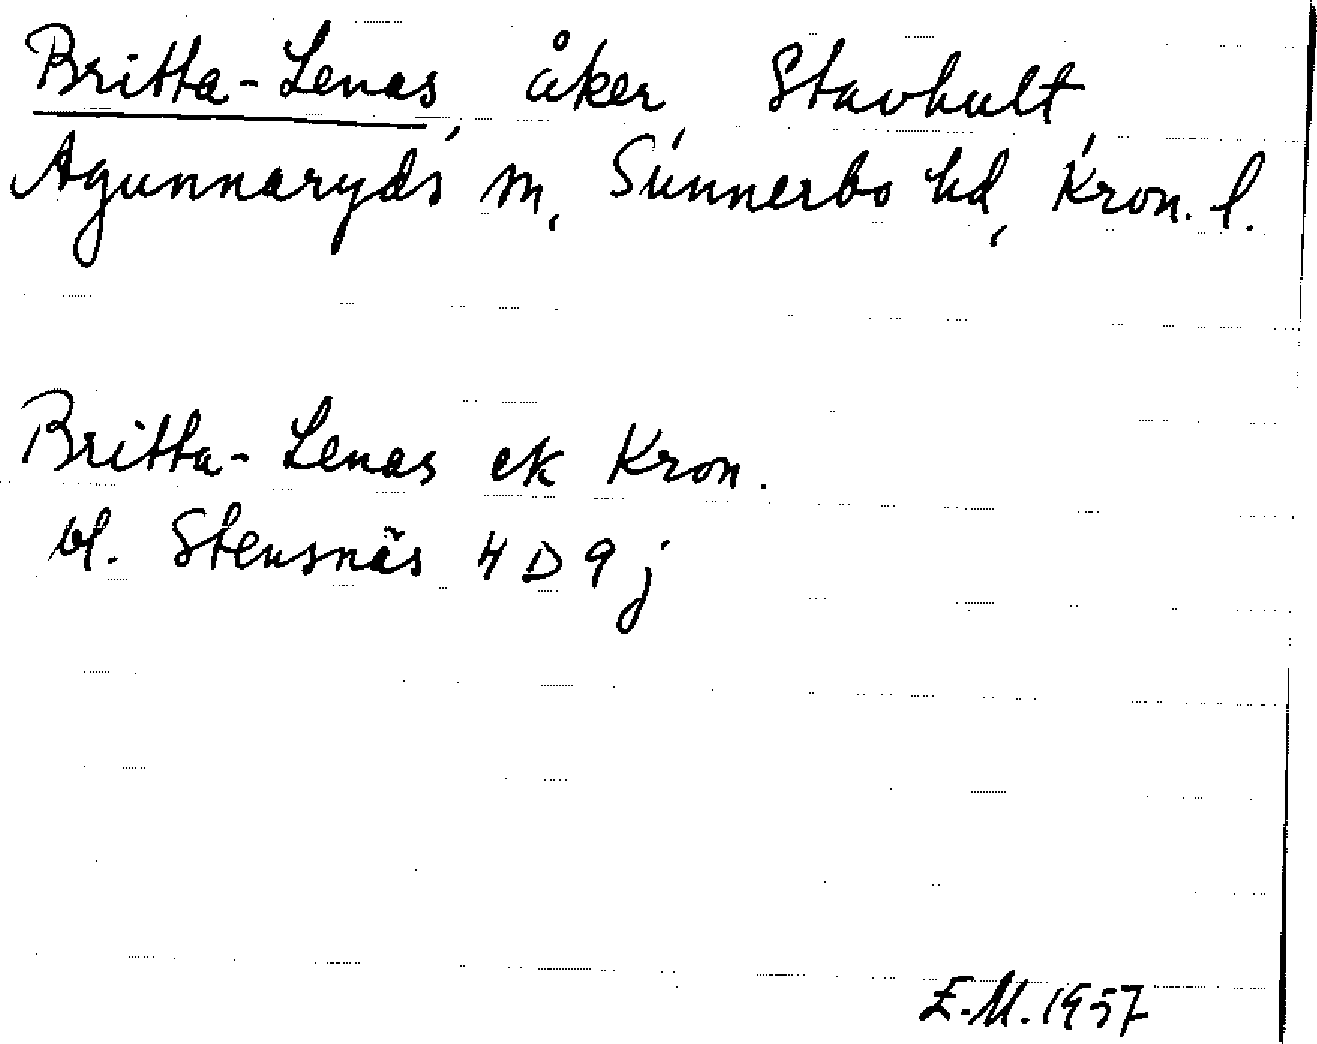 Britta-Lenas, åker, Stavhult,
Agunnaryds sn, Sunnerbo hd, Kron. l.
Britta-Lenas ek Kron.
bl. Stensnäs 4 D 9 j
E.M. 1957